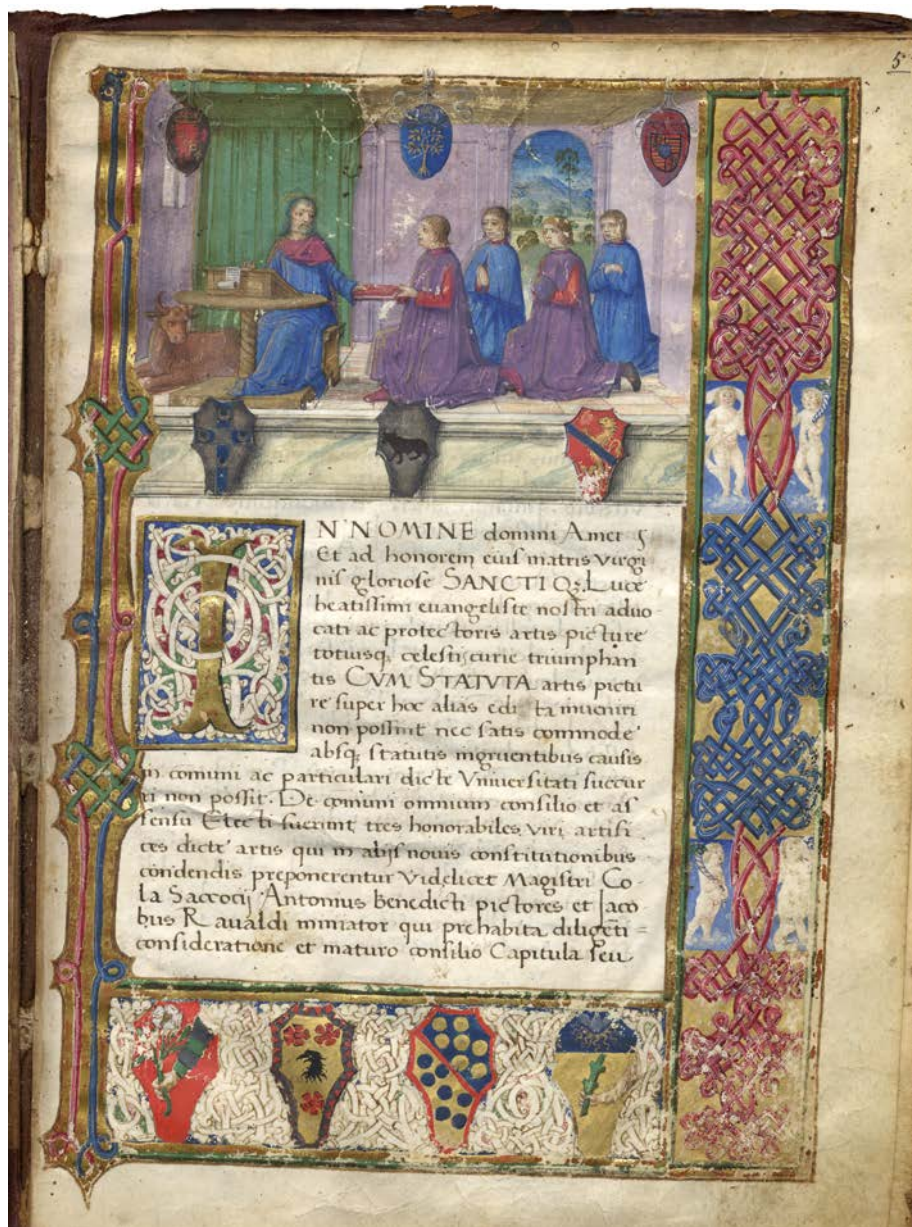 5
N NOMINE domini Amen
Et ad honorem eius matris virgi
nis gloriose SANCTIQ; Luce
beatissimi euangeliste nostri advo
cati ac protectoris artis picture
totiusq; celestis curie triumphan
tis CVM STATVTA artis pictu
re super hoc alias edita inueniri
non possint nec satis commode
absq; statutis ingruentibus causis
in comuni ac particulari dicte Vniuersitati succur
ri non possit. De comuni omnium consilio et as
sensu Electi fuerint tres honorabiles viri artifi
ces dicte artis qui in abijs nouis constitutionibus
condendis preponerentur Videlicet Magistri Co
la Saccocij Antonius Benedicti pictores et Jaco
bus Raualdi miniator qui prehabita diligenti =
consideratione et maturo consilio Capitula seu